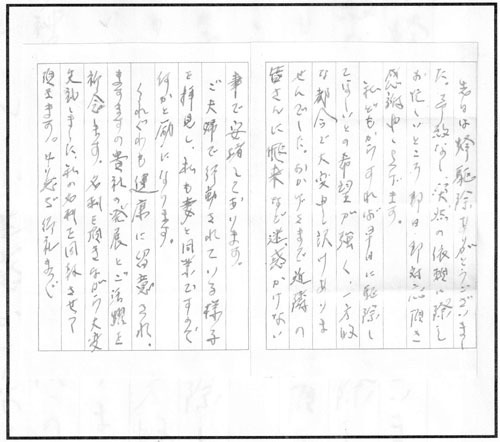 先日は蜂駆除ありがとうございまし
た。手数なし突然の依頼に際し
お忙しいところ即日即対応頂き
感謝申し上げます。
私どもからすれば早日に駆除し
てほしいとの希望が強く一方的
な都合で大変申し訳けありま
せんでした。おかげさまで近隣の
皆さんに飛来など迷惑かけない
事で安堵しております。
ご夫婦で行動されている様子
を拝見し、私も妻と同業ですので
何かと励になります。
くれぐれも健康に留意され、
ますますの貴社の発展とご活躍を
祈念します。名刺を頂きながら大変
失礼しました。私の名刺を同封させて
頂きます。